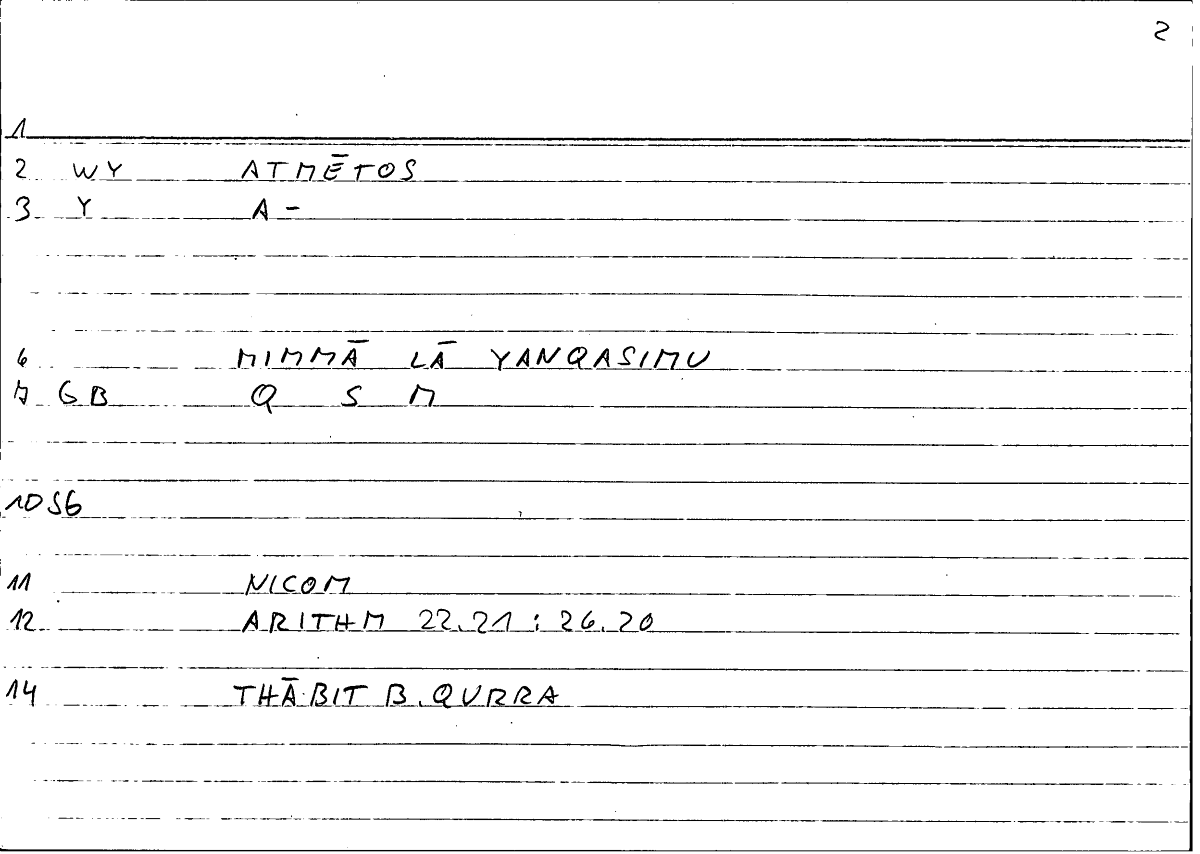 2
1
2 WY ATMĒTOS
3 Y A -
6 MIMMĀ LĀ YANQASIMU
7 GB Q S M
10 SG
11 NICOM
12 ARITHM 22.21 : 26.20
14 THĀBIT B. QURRA